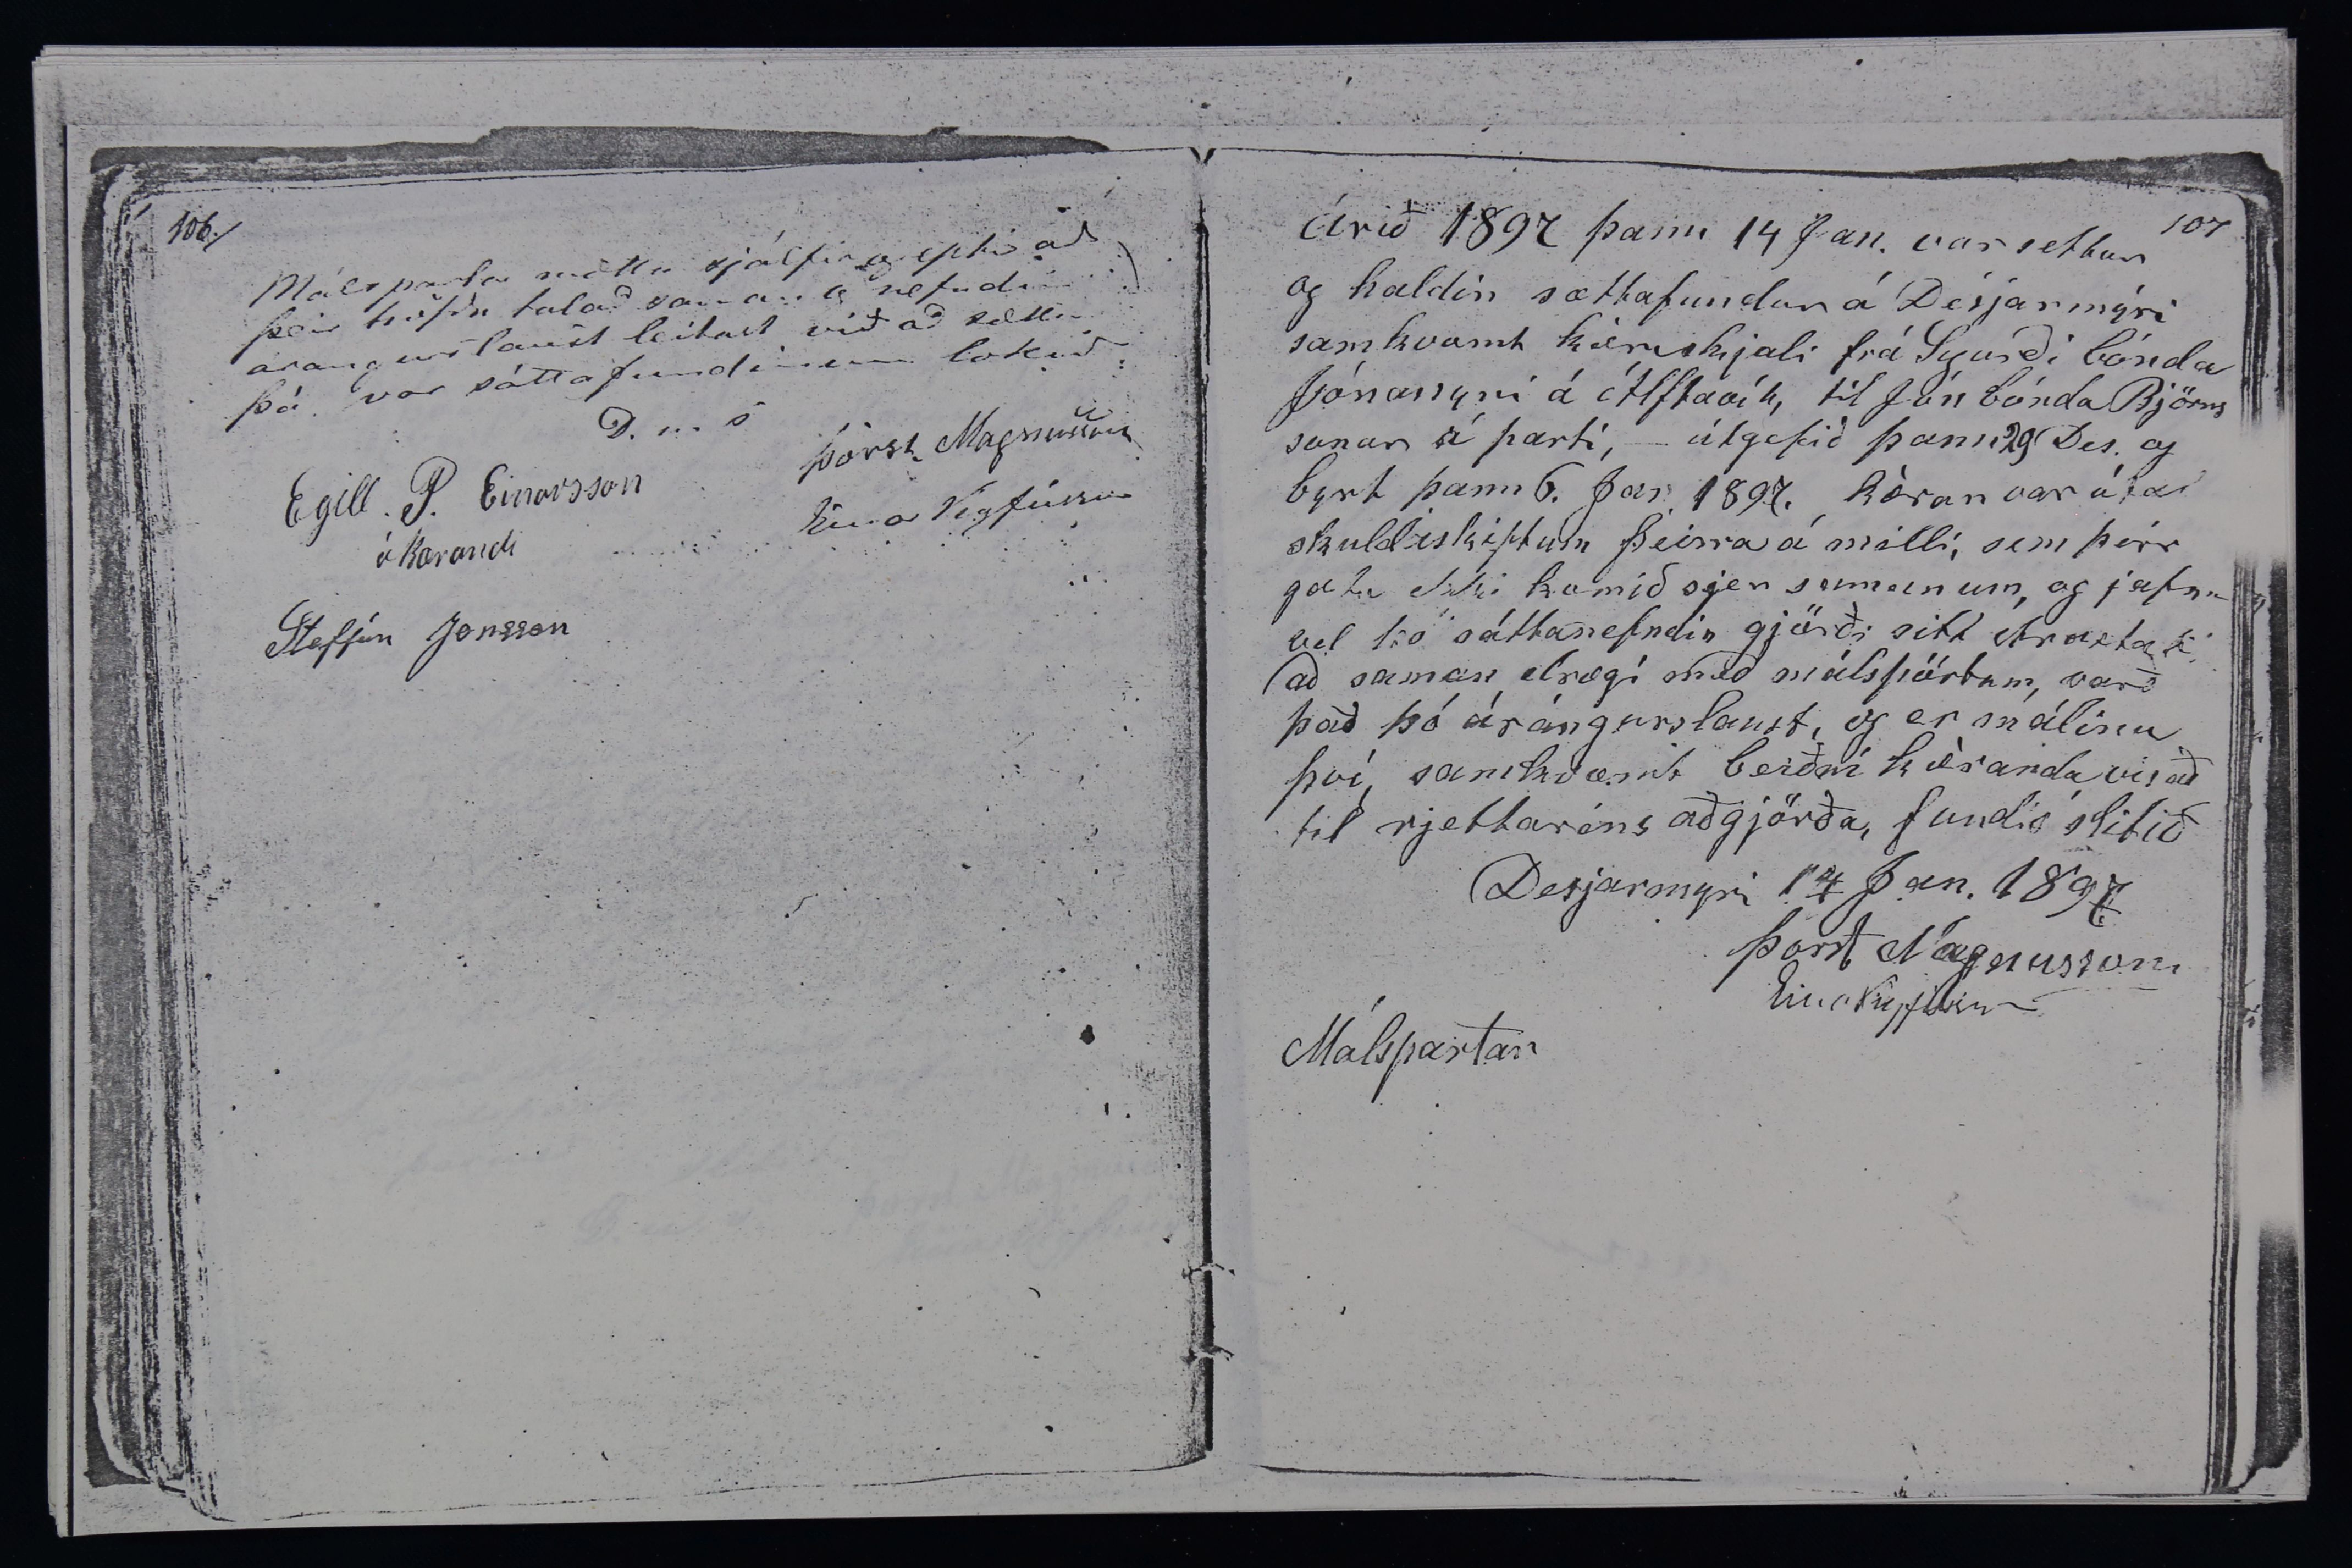 106./
Málspartar mættu sjálfir og eptir að
þeir höfðu talað saman og nefndin
arangurslaust leitast við að sætta
þá var sáttafundinum lokið
D. u. s
Þorst. Magnússon
Egill. P. Einarsson
Einar Vigfússon
ó Kærandi
Steffán Jonsson
107
Árið 1897 þann 14 Jan. var settur
og haldin sættafundur á Desjarmýri
samkvæmt kæruskjali frá Sgurði bónda
Jónassyni á Álftavík, til Jón bónda Björns
sonar á parti, – útgefið þann 29 Des. og
byrt þann 6. Jan 1897. Kæran var út af
skuldaskiptum þeirra á milli, sem þeir
gátu ekki komið sjer saman um, og jafn
vel þó sáttanefndin gjörði sitt ítrasta til
að saman drægi með málspörtum, varð
það þó árángurslaust, og er málinu
því, samkvæmt beiðni kæranda vísað
til rjettarins aðgjörða, fundið slitið
Desjarmyri 14 Jan. 1897
Þorst Magnusson
Einar Vigfússon
Málspartar